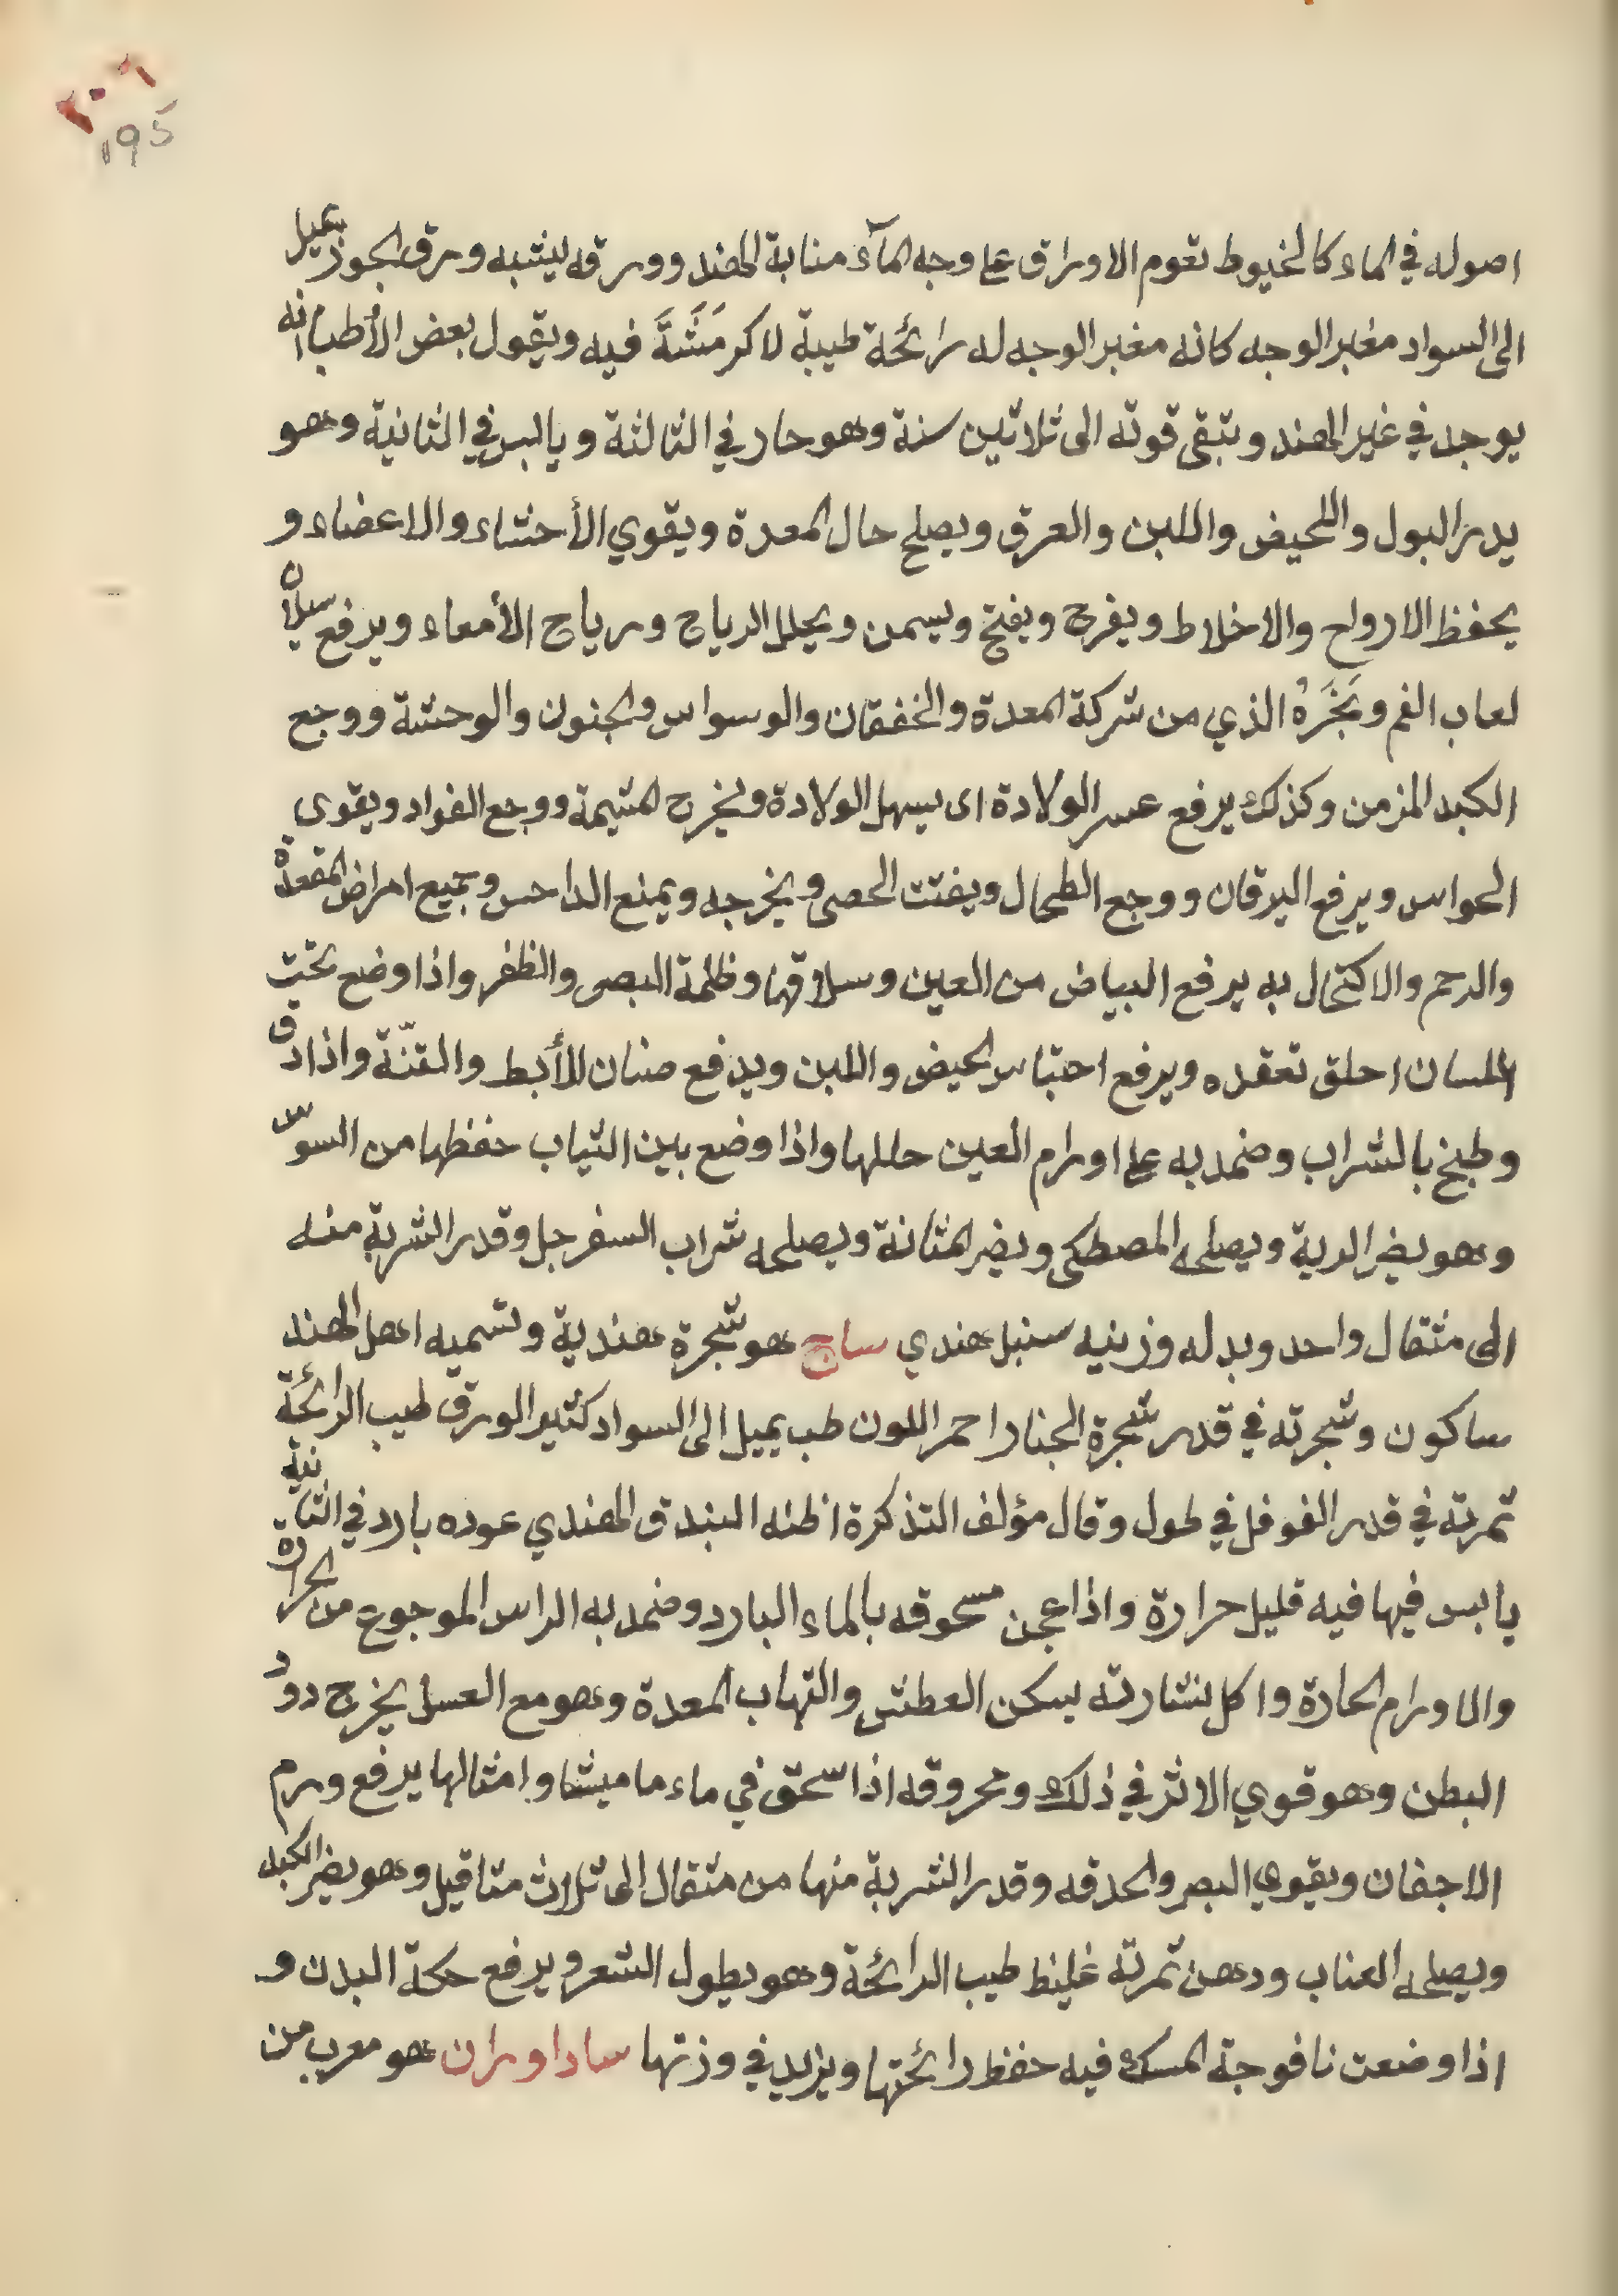 ٢٠٦
195
اصوله في الماء كالخيوط تقوم الاوراق على وجه المآء منابة الهند وورقه يشبه ورق الجوز يميل
الى السواد مغبر الوجه كانه مغبر الوجه له رائحة طيبة لا كرمشة فيه ويقول بعض الأطبا انه
يوجد في غير الهند وتبقى قوته الى ثلاثين سنة وهو حار في الثالثة ويابس في الثانية وهو
يدر البول والحيض واللبن والعرق ويصلح حال المعدة ويقوي الأحشاء والاعضاء و
يحفظ الارواح والاخلاط ويفرح ويفتح ويسمن ويحلل الرياح ورياح الأمعاء ويرفع سيلان
لعاب الفم وبَخَرَهُ الذي من شركة المعدة والخفقان والوسواس والجنون والوحشة ووجع
الكبد المزمن وكذلك يرفع عسر الولادة اى يسهل الولادة ويخرج المشيمة ووجع الفواد ويقوى
الحواس ويرفع اليرقان ووجع الطحال ويفتت الحصى ويخرجه ويمنع الداحس وجميع امراض المقعدة
والرحم والاكتحال به يرفع البياض من العين وسلاقها وظلمة البصر والظفر واذا وضع تحت
اللسان احلق تعقده ويرفع احتباس الحيض واللبن ويدفع صنان للأبط والقنّة واذا دق
وطبخ بالشراب وضمد به على اورام العين حللها واذا وضع بين الثياب حفظها من السوس
وهو يضر الرية ويصلحه المصطكى ويضر المثانة ويصلحه شراب السفرجل وقدر الشربة منه
الى مثقال واحد وبدله وزنيه سنبل هندي ساج هو شجرة هندية وتسميه اهل الهند
ساكون وشجرته في قدر شجرة الجنار احمر اللون طب يميل الى السواد كثير الورق طيب الرائحة
ثمرته في قدر الفوفل في طول وقال مؤلف التذكرة اظنه البندق الهندي عوده بارد في الثانية
يابس فيها فيه قليل حرارة واذا عجن مسحوقه بالماء البارد وضمد به الراس الموجوع من الحرارة
والاورام الحادة واكل نشارته يسكن العطش والتهاب المعدة وهو مع العسل يخرج دود
البطن وهو قوي الاثر في ذلك ومحروقه اذا سحق في ماء ماميثا وامثالها يرفع ورم
الاجفان ويقوي البصر والحدقه وقدر الشربة منها من مثقال الى ثلاث مثاقيل وهو يضر الكبد
ويصلحه العناب ودهن ثمرته غليظ طيب الرائحة وهو يطول الشعر ويرفع حكة البدن و
اذا وضعت نافوجة المسك فيه حفظ رائحتها ويزيد في وزنها ساداوران هو معرب من